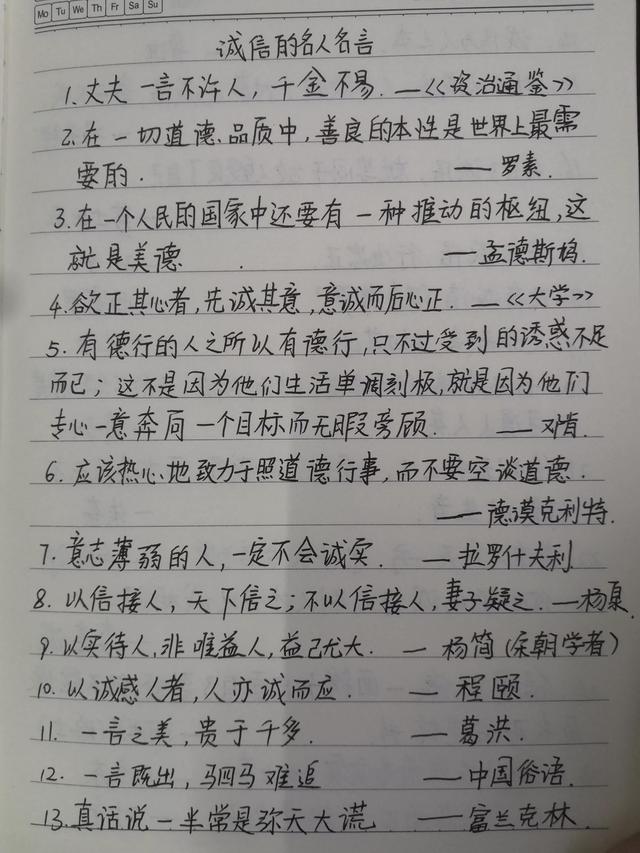 Mo Tu We Th Fr Sa Su
诚信的名人名言
1.丈夫一言不许人，千金不易.—《资治通鉴》
2.在一切道德品质中，善良的本性是世界上最需
要的. ——罗素.
3.在一个人民的国家中还要有一种推动的枢纽，这
就是美德. ——孟德斯鸠.
4.欲正其心者，先诚其意，意诚而后心正. —《大学》
5.有德行的人之所以有德行，只不过受到的诱惑不足
而已；这不是因为他们生活单调刻板，就是因为他们
专心一意奔向一个目标而无暇旁顾. ——邓肯.
6.应该热心地致力于照道德行事，而不要空谈道德.
——德谟克利特.
7.意志薄弱的人，一定不会诚实. ——拉罗什夫利
8.以信接人，天下信之；不以信接人，妻子疑之.—杨泉.
9.以实待人，非唯益人，益己尤大. — 杨简(宋朝学者)
10.以诚感人者，人亦诚而应. —— 程颐.
11.一言之美，贵于千多. ——葛洪.
12.一言既出，驷马难追 ——中国俗语.
13.真话说一半常是弥天大谎 ——富兰克林.